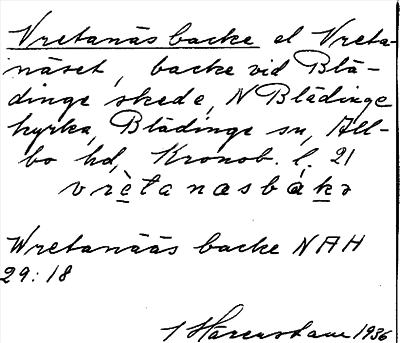 Vretanäs backe el Vreta-
näset, backe vid Blä-
dinge skede, N Blädinge
kyrka, Blädinge sn, All-
bo hd, Kronob. l. 21
vrètanasbákə
Wretanääs backe NAH
29:18
I Härenstam 1936